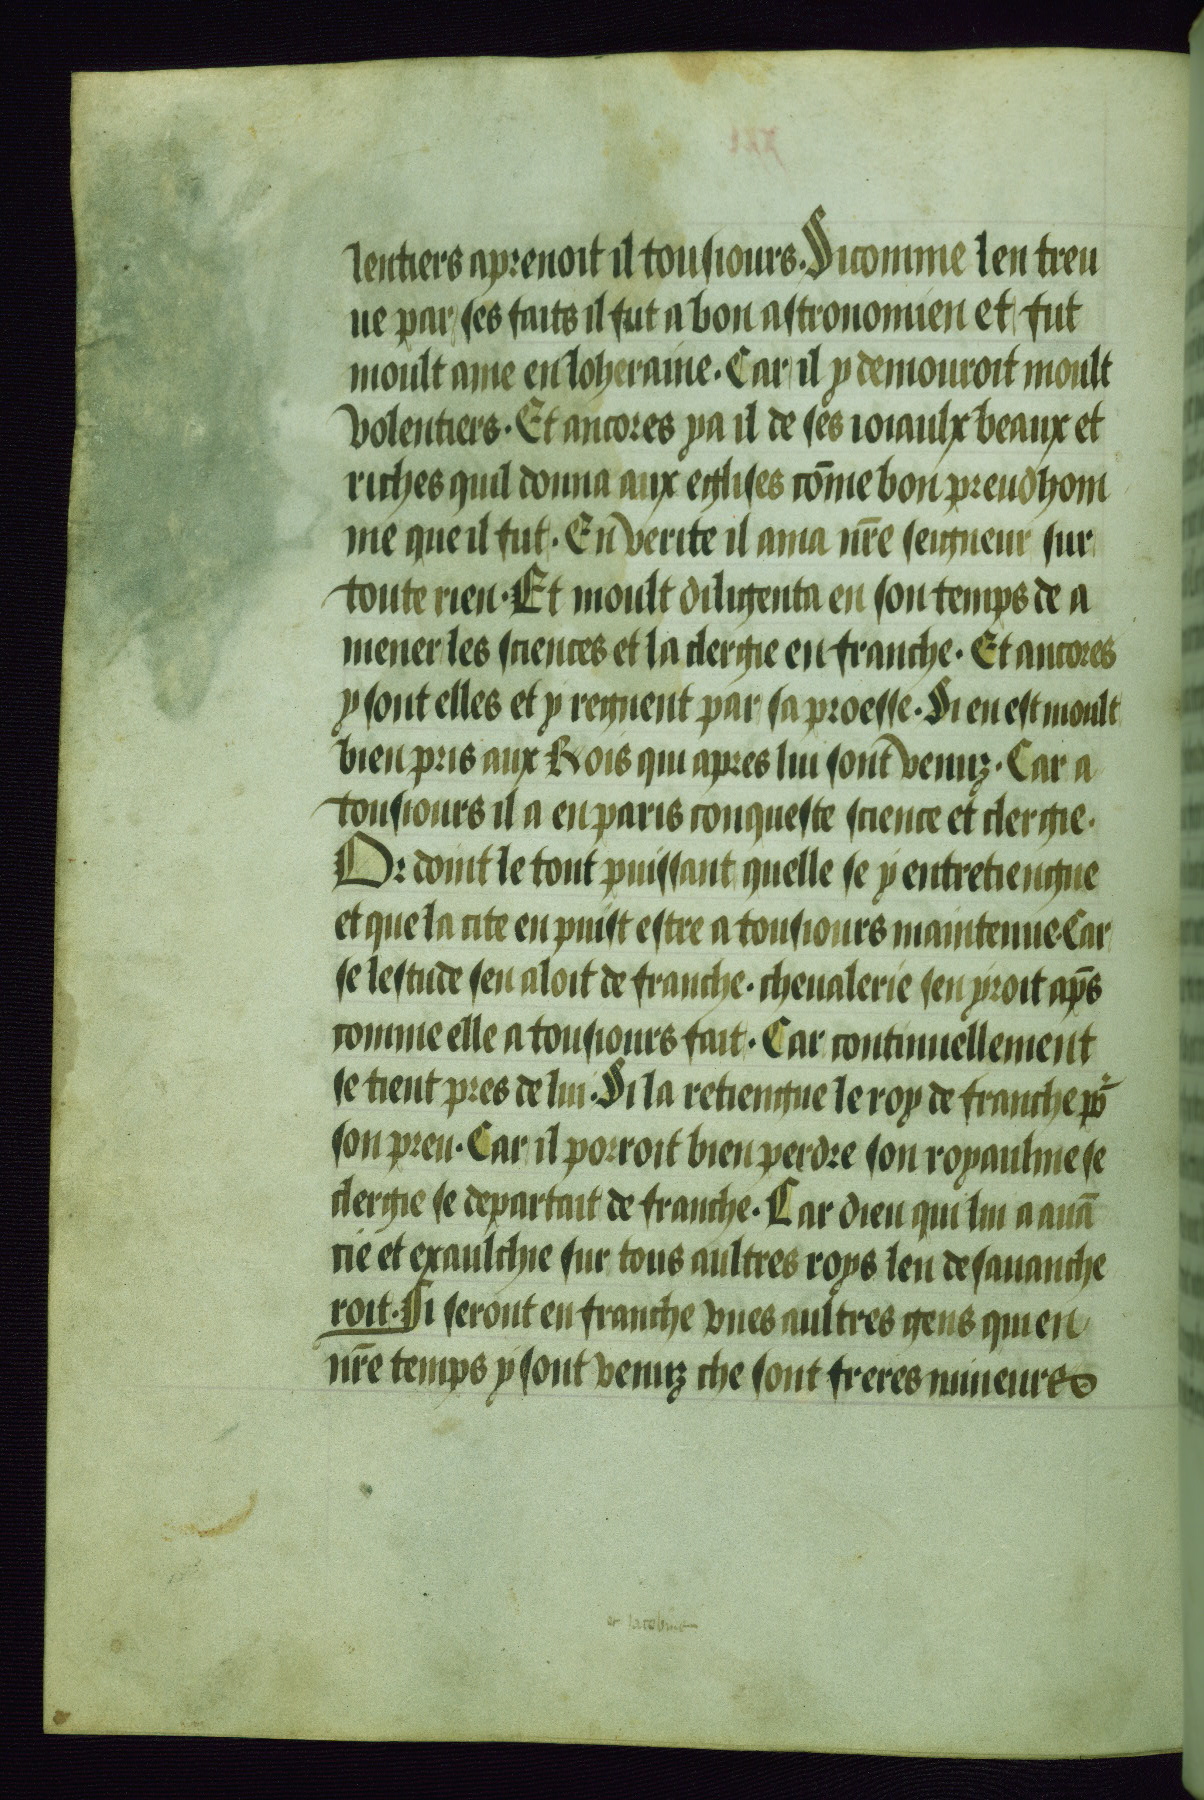 lentiers aprenoit il tousiours. Sicomme len treu
ue par ses faits il fut a bon astronomien et fut
moult ame en loheraine. Car il y demouroit moult
volentiers. Et ancores ya il de ses ioiaulx beaux et
riches quil donna aux eglises cõme bon preudhom
me que il fut. En verite il ama nr̃e seigneur sur
toute rien. Et moult diligenta en son temps de a
mener les sciences et la clergie en franche. Et ancores
y sont elles et y regnent par sa proesse. Si en est moult
bien pris aux Rois qui apres lui sont venuz. Car a
tousiours il a en paris conqueste science et clergie.
Or doint le tout puissant quelle se y entretiengne
et que la cite en puist estre a tousiours maintenue. Car
se lestude sen aloit de franche. cheualerie sen yroit ap̃s
comme elle a tousiours fait. Car continuellement
se tient pres de lui. Si la retiengne le roy de franche po᷑
son preu. Car il porroit bien perdre son royaulme se
clergie se departait de franche. Car dieu qui lui a auã
cie et exaulchie sur tous aultres roys len desauanche
roit. Si seront en franche vnes aultres gens qui en
nr̃e temps y sont venuz che sont freres mineurs
et iacobins